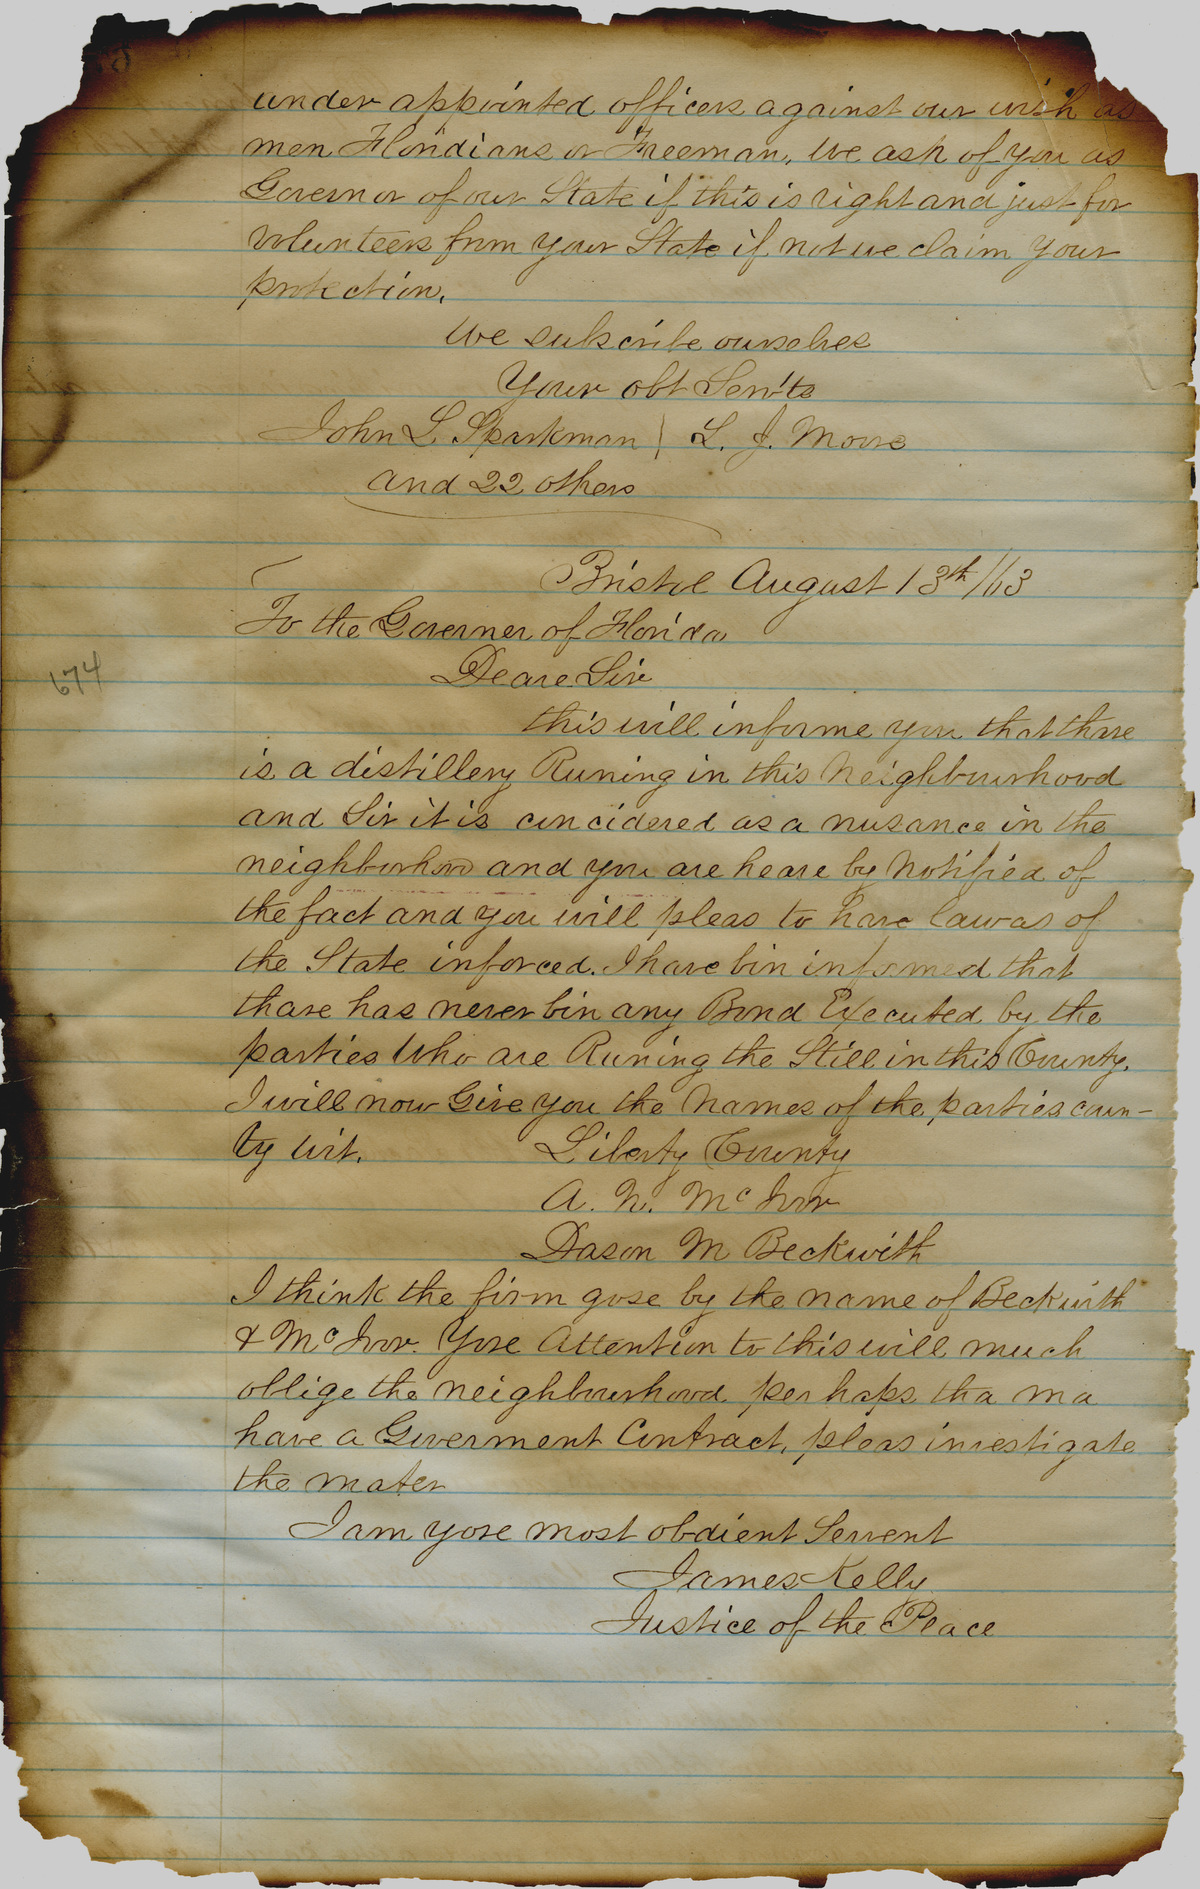 under appointed officers against our wish as
men Floridians or Freeman. We ask of you as
Governor of our State if this is right and just for
volunteers from your State if not we claim your
protection.
We subscribe ourselves
Your obt Serv'ts
John L. Sparkman | L. J. Moore
and 22 others
Bristol August 13th /63
To the Governer of Florida
Deare Sir
this will informe you that thare
is a distillery Runing in this Neighbourhood
and Sir it is concidered as a nusance in the
neighborhood and you are heare by Notified of
the fact and you will pleas to have lawas of
the State inforced. I have bin informed that
thare has never bin any Bond Executed by the
parties Who are Runing the Still in this County.
I will now Give you the Names of the parties coun-
ty wit. Liberty County
A. N. McIvor
Dason M Beckwith
I think the firm gose by the name of Beckwith
& McIvor. Yore Attention to this will much
oblige the neighbourhood perhaps tha ma
have a Goverment Contract, pleas investigate
the mater
I am yore most obdient Servent
James Kelly
Justice of the Peace
674